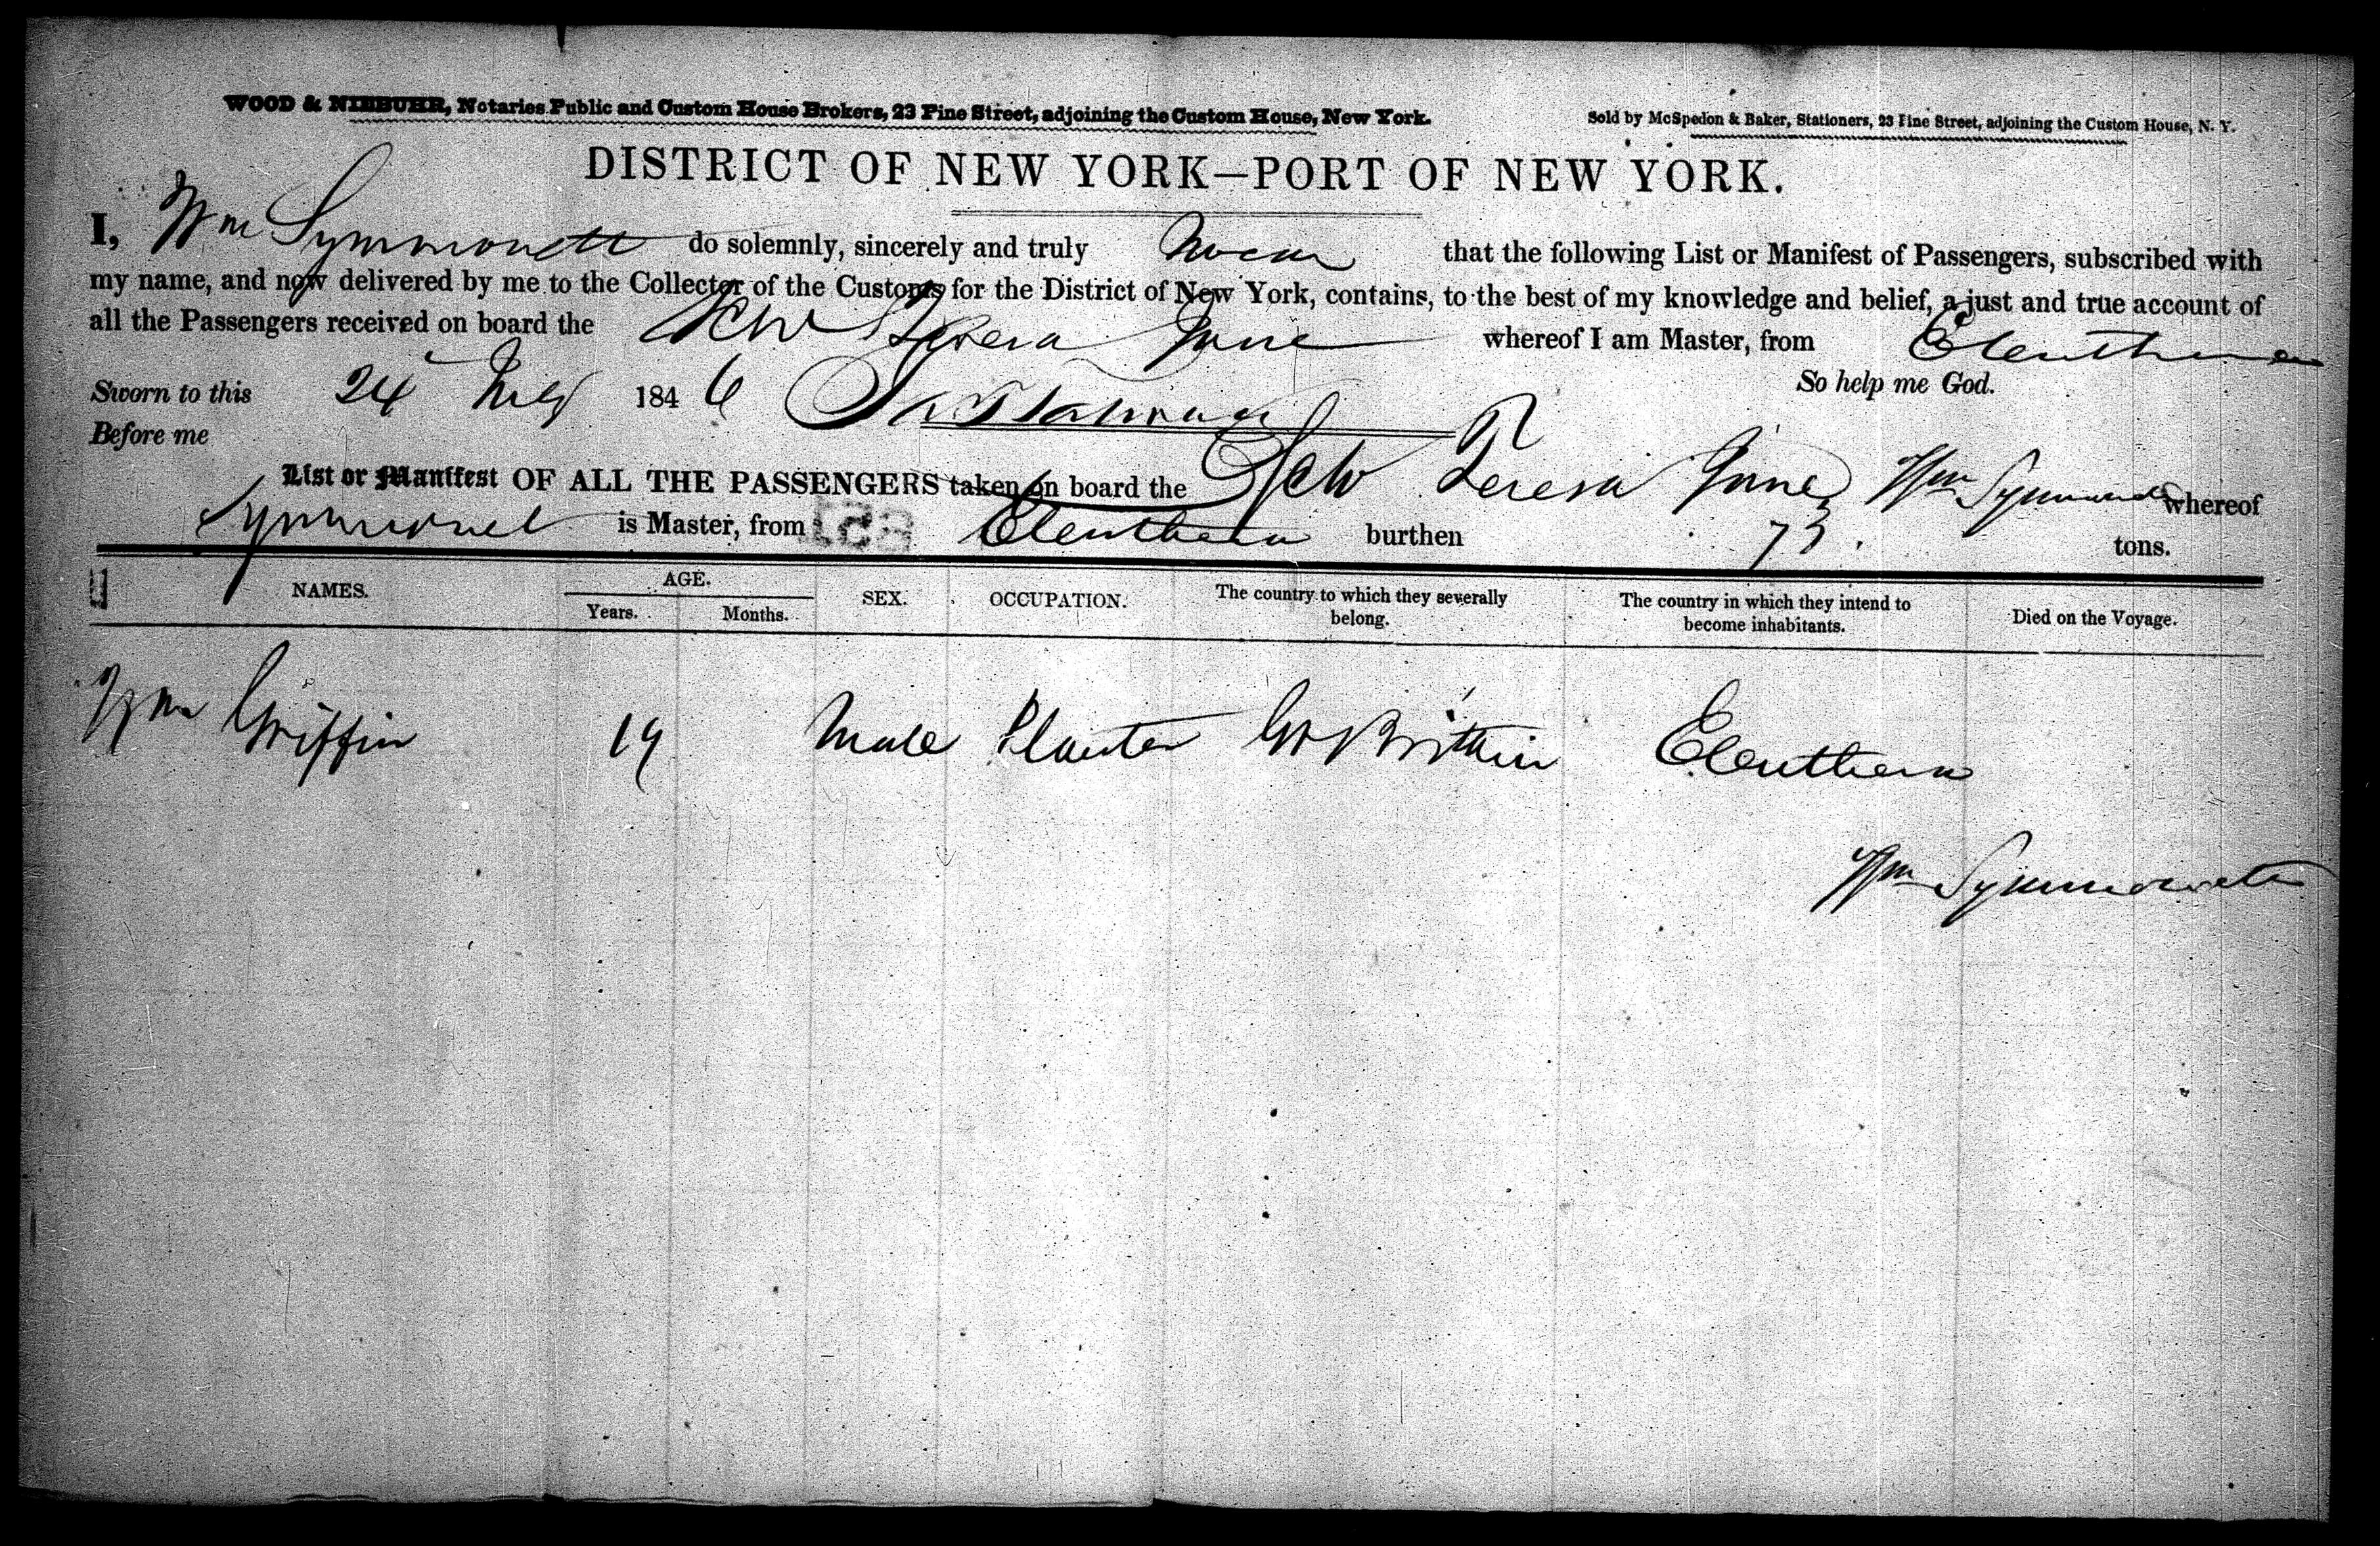 WOOD & NIEBUHR, Notaries Public and Custom House Brokers, 23 Pine Street, adjoining the Custom House, New York.
Sold by McSpedon & Baker, Stationers, 23 Pine Street, adjoining the Custom House, N. Y.
DISTRICT OF NEW YORK—PORT OF NEW YORK.
I, Wm Symmonett do solemnly, sincerely and truly swear that the following List or Manifest of Passengers, subscribed with
my name, and now delivered by me to the Collector of the Customs for the District of New York, contains, to the best of my knowledge and belief, a just and true account of
all the Passengers received on board the Schr Teresa Jane whereof I am Master, from Eleuthera
So help me God.
Sworn to this 24 July 1846
Before me
List or Manifest OF ALL THE PASSENGERS taken on board the Schr Teresa Jane Wm whereof
Symmonet is Master, from Eleuthera burthen 73 tons.
NAMES. AGE. SEX. OCCUPATION. The country to which they severally belong. The country in which they intend to become inhabitants. Died on the Voyage.
Years. Months.
Wm Griffin 19 Male Planter Gr Brittin Eleuthera
Wm Symmonett